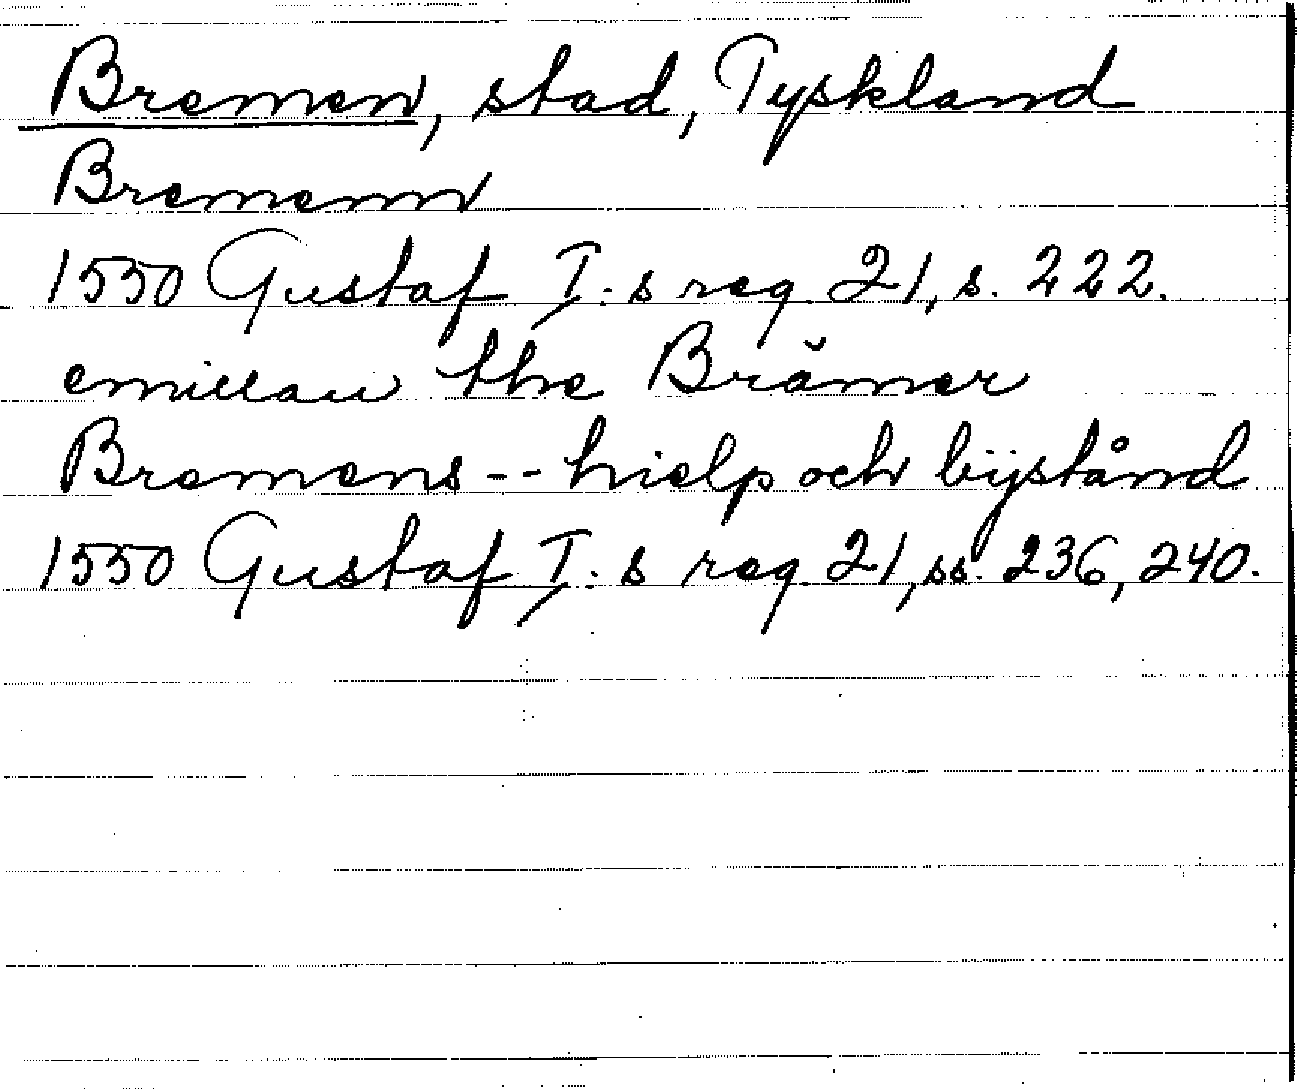 Bremen, stad, Tyskland
Bremenn
1550 Gustaf I:s reg 21, s. 222.
emillan the Brämer
Bremens -- hielp och bijstånd
1550 Gustaf I:s reg 21, ss. 236, 240.